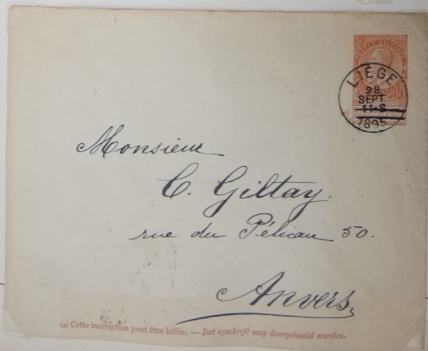 LIÉGE
28
SEPT
11-S
1895
10
Monsieur
C. Giltay.
rue du Pélican 50.
Anvers
(a) Cette inscription peut être biffée. — Dat opschrift mag doorgehaald worden.